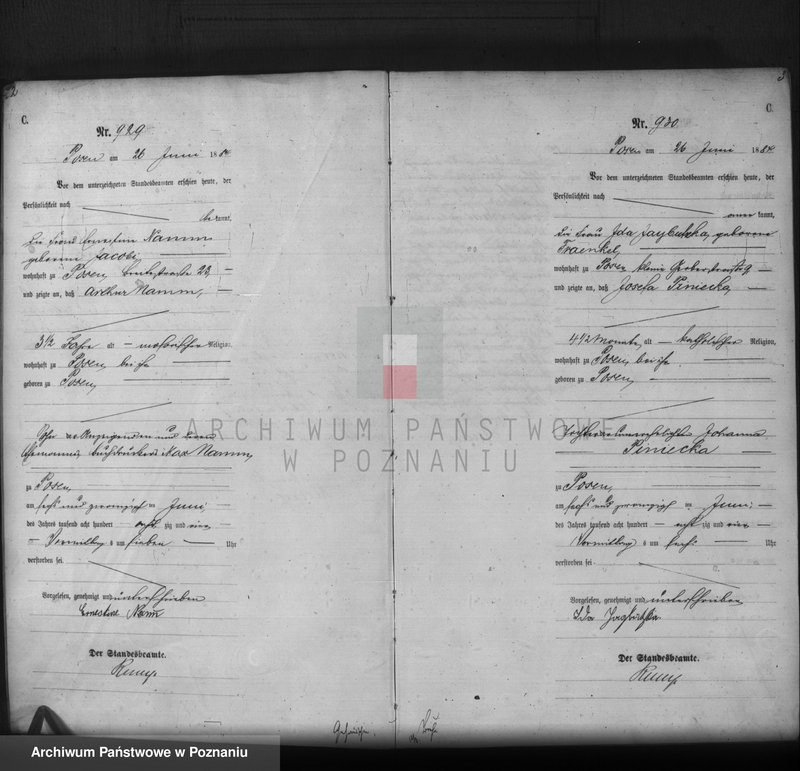 2
C.
Nr. 929
Posen am 26 Juni 1884
Vor dem unterzeichneten Standesbeamten erschien heute, der
Persönlichkeit nach
be kannt,
die Frau Ernestine Namm
geborene Jacobi,
wohnhaft zu Posen, Breitestraße 22,
und zeigte an, daß Arthur Namm,
3 1/2 Jahr alt mosaischer Religion,
wohnhaft zu Posen bei ihr
geboren zu Posen,
Sohn der Anzeigenden und deren
Ehemannes, Buchdruckers Max Namm,
zu Posen,
am sechs und zwanzigsten Juni
des Jahres tausend acht hundert acht zig und vier
Vormittags um sieben Uhr
verstorben sei
Vorgelesen, genehmigt und unterschrieben
Ernestine Namm
Der Standesbeamte.
3
C.
Nr. 930
Posen am 26 Juni 1884
Vor dem unterzeichneten Standesbeamten erschien heute, der
Persönlichkeit nach
kannt,
die Frau Ida geborene
Fraenkel,
wohnhaft zu Posen kleine Gerberstraße 9
und zeigte an, daß Josefa Piniecka,
4 1/2 Monate, alt katholischer Religion,
wohnhaft zu Posen, bei ihr
geboren zu Posen,
Tochter der unverehelichten Johanna
Piniecka
zu Posen,
am sechs und zwanzigsten Juni
des Jahres tausend acht hundert acht zig und vier
Vormittags um sechs Uhr
verstorben sei
Vorgelesen, genehmigt und unterschrieben
Ida
Der Standesbeamte.
ARCHIWUM PAŃSTWOWE
W POZNANIU
Archiwum Państwowe w Poznaniu